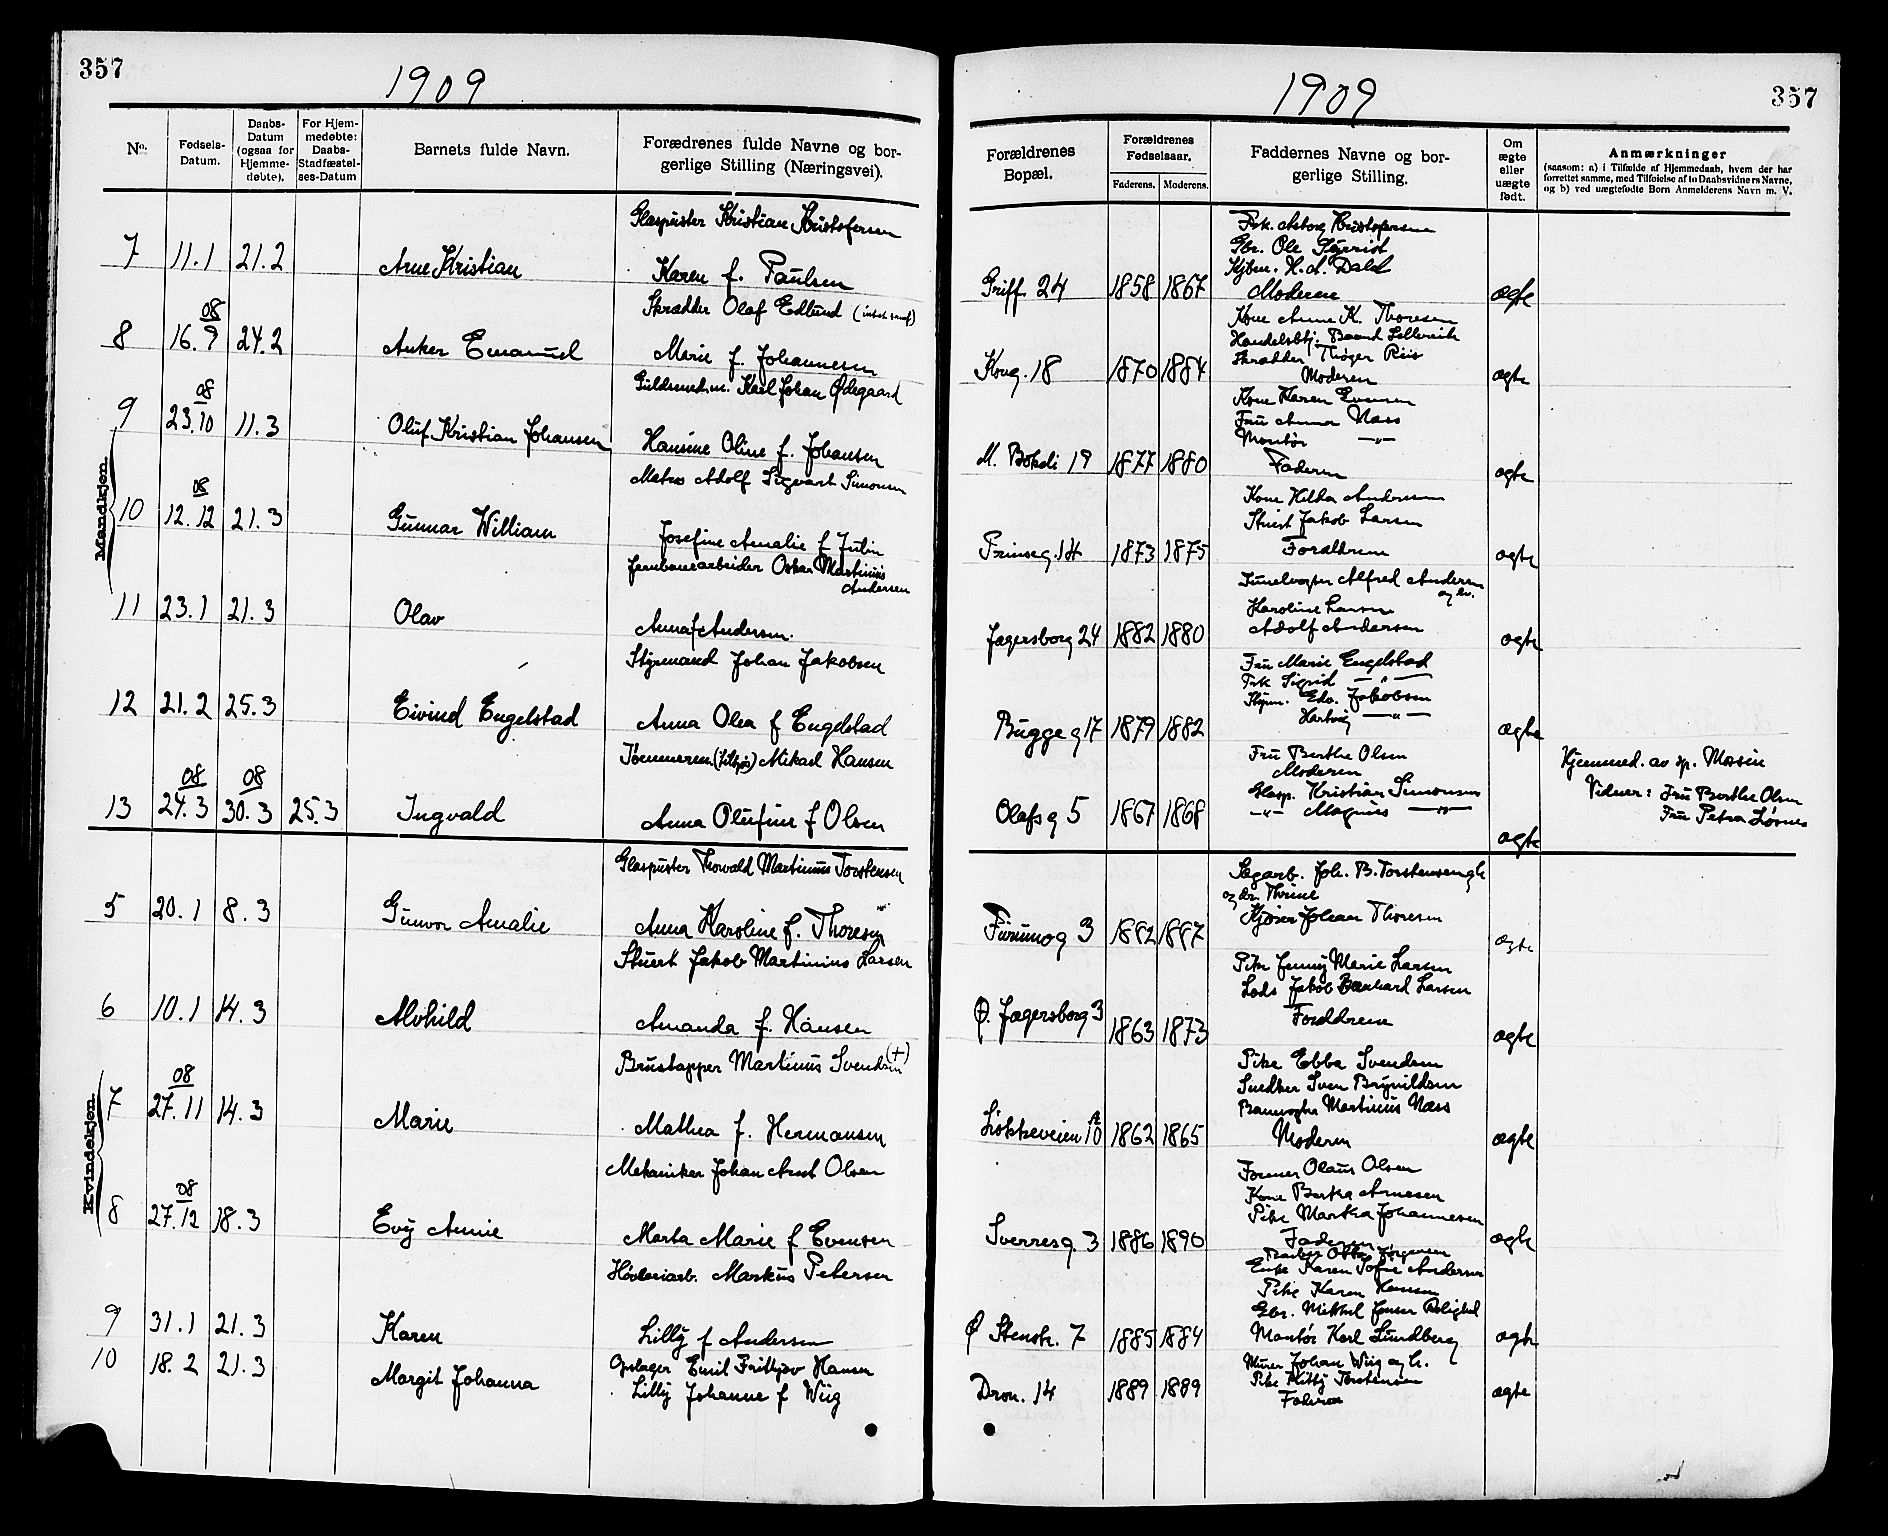 357
1909
No.
Fødsels-
Datum.
Daabs-
Datum
(ogsaa for
Hjemme-
døbte).
For Hjem-
medøbte:
Daabs-
Stadfæstel-
ses-Datum
Barnets fulde Navn.
Forædrenes fulde Navne og bor-
gerlige Stilling (Næringsvei).
Mandkjøn.
7 11.1 21.2 Arne Kristian
Glaspuster Kristian Kristofersen
Karen f. Paulsen
8 16.9 08 24.2 Anker Emanuel
Skrædder Olaf Edlund
Marie f. Johannesen
9 23.10 08 11.3 Oluf Kristian Johansen
Guldsmedm. Karl Johan Ødegaard
Hansine Oline f. Johansen
10 12.12 08 21.3 Gunnar William
Matros Adolf Sigvart Simonsen
Josefine Amalie f. Julin
11 23.1 21.3 Olav
Jernbanearbeider Oskar Martinius
Andersen
Anna f Andersen.
12 21.2 25.3 Eivind Engelstad
Styrmand Johan Jakobsen
Anna Olea f Engelstad
13 24.3 08 30.3 08 25.3 Ingvald
Tømmerm. Mikael Hansen
Anna Olufine f Olsen
Kvindekjøn.
5 20.1 8.3 Gunvor Amalie
Glaspuster Thorvald Martinius Torstensen
Anna Karoline f. Thoresen
6 10.1 14.3 Alvhild
Stuert Jakob Martinius Larsen
Amanda f. Hansen
7 27.11 08 14.3 Marie
Brustapper Martinus Svendsen (+)
Mathea f. Hermansen
8 27.12 08 18.3 Evy Annie
Mekaniker Johan Arnt Olsen
Marta Marie f Evensen
9 31.1 21.3 Karen
Høvleriarb. Markus Petersen
Lilly f Andersen
10 18.2 21.3 Margit Johanna
Opslager Emil Fritjov Hansen
Lilly Johanne f Wiig
357
1909
Forældrenes
Bopæl.
Forældrenes
Fødselsaar.
Faderens. Moderens.
Faddernes Navne og bor-
gerlige Stilling.
Om
ægte
eller
uægte
født.
Anmærkninger
(saasom: a) i Tilfælde af Hjemmedaab, hvem der har
forrettet samme, med Tilføielse af to Daabsvidners Navne,
og b) ved uægtefødte Børn Anmelderens Navn m. V.
Griff. 24 1858 1867 ægte
Pik. Asborg Kristofersen
Gbr. Ole
Kjbm. H. A. Dahl
Moderen
Kong. 18 1870 1884 ægte
Kone Anna K. Thoresen
Handelsbtj.
Skrædder Thøger Riis
Moderen
M. Bokeli 19 1877 1880 ægte
Kone Karen Evensen
Fru Anna Næss
Montør —"—
Faderen
Prinseg. 14 1873 1875 ægte
Kone Hilda Andersen
Stuert Jakob Larsen
Forældrene
Jegersborg 24 1882 1880 ægte
Tunelvogter Alfred Andersen
og hu.
Karoline Larsen
Adolf Andersen
Bugge g 17 1879 1882 ægte
Fru Marie Engelstad
Pik. Sigrid —"—
Styrm. Edv. Jakobsen
Hartvig —"—
Olafs g 5 1867 1868 ægte
Fru Berthe Olsen
Moderen
Glasp. Kristian Simonsen
—"— Magnus —"—
Hjemmed. av
Vidner: Fru Berthe Olsen
Fru Petra
Furumo g 3 1882 1887 ægte
Sagarb. Joh. B. Torstensen
og Thrine
Kjører Johan Thoresen
Ø. Jegersborg 3 1863 1873 ægte
Pike Jenny Marie Larsen
Lods Jakob Bernhard Larsen
Forældrene
Løkkeveien 10 A 1862 1865 ægte
Pike Ebba Svendsen
Snedker Sven Brynildsen
Banevogter Martinius Næss
Moderen
Sverresg. 3 1886 1890 ægte
Former Olaus Olsen
Kone Berta Arnesen
Pike Martha Johannesen
Faderen
Ø Stenstr. 7 1885 1884 ægte
Otto Jørgensen
Enke Karen Sofie Andersen
Pike Karen Hansen
Gbr. Mikkel Jensen
Montør Karl Lundberg
Dron. 14 1889 1889 ægte
Murer Johan Wiig og h.
Pike Kitty Torstensen
Faderen